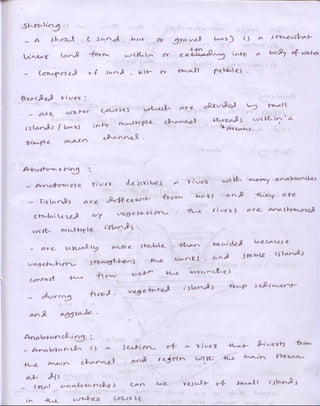 Shoaling :
- A shoal ( sand bar or gravel bar) is a somewhat
linear land form within or extending into a body of water
- Composed of sand, silt or small pebbles.
Braided river :
- are water courses which are divided by small
islands / bars into multiple channel threads within a
streams
simple main channel.
:
- Anastomose river describes a river with many anabranches
- Islands are different from bars and they are
stabilized by vegetation. The rivers are anastomosed
with multiple islands.
- are usually more stable than braided because
vegetation straightens the banks, and stable islands
control the flow betn the branches.
- during flood, vegetated islands trap sediment
and aggrade.
Anabranching :
- Anabranch is a section of a river that diverts from
the main channel and rejoin with the main stream
at d/s
- local anabranches can be result of small islands
in the water course